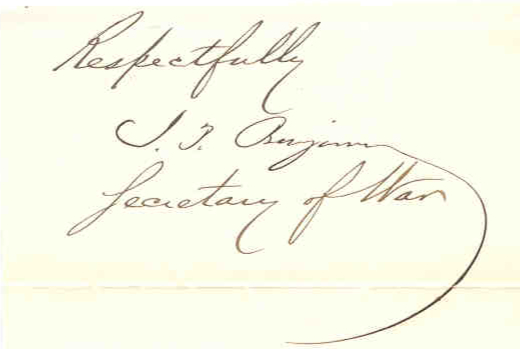 Respectfully
J. P. Benjamin
Secretary of War